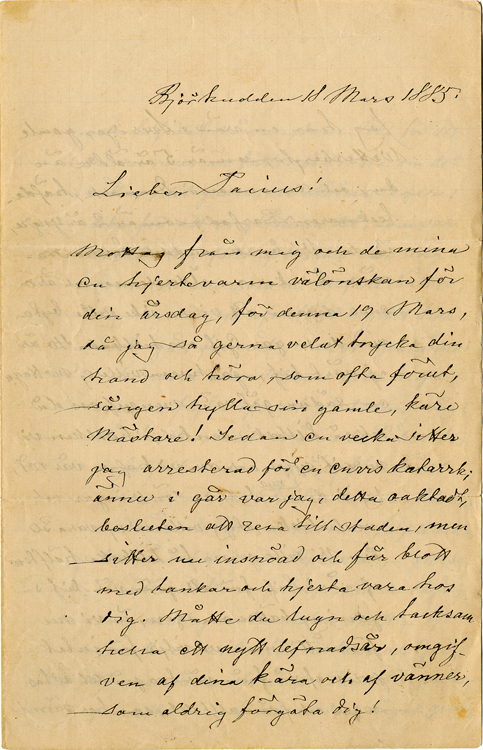 Björkudden 18 Mars 1885.
Lieber Pacius!
Mottag från mig och de mina
en hjertevarm välönskan för
din årsdag, för denna 19 Mars,
då jag så gerna velat trycka din
hand och höra, som ofta förut,
sången hylla sin gamle, käre
Mästare! Sedan en vecka sitter
jag arresterad för en envis katarrh;
ännu i går var jag, detta oaktadt,
besluten att resa till staden, men
sitter nu insnöad och får blott
med tankar och hjerta vara hos
dig. Måtte du lugn och tacksam
helsa ett nytt lefnadsår, omgif-
ven af dina kära och af vänner,
som aldrig förgäta dig!